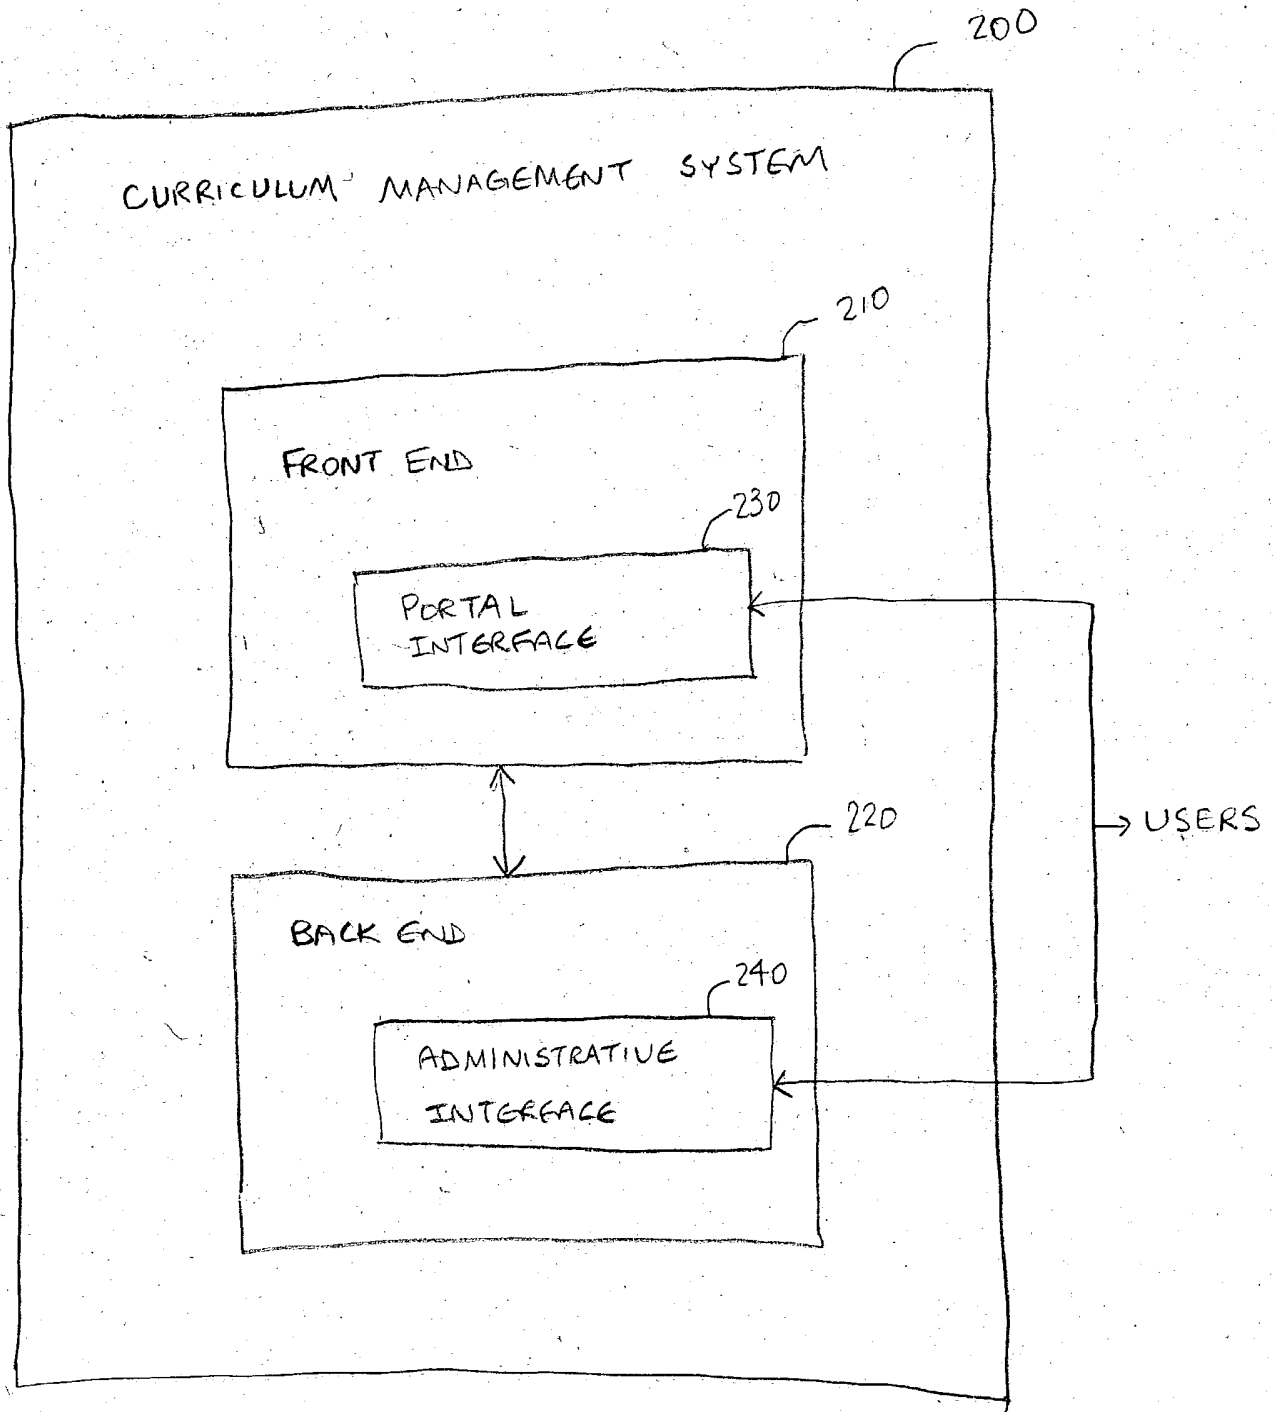 200
CURRICULUM MANAGEMENT SYSTEM
210
FRONT END
230
PORTAL
INTERFACE
USERS
220
BACK END
240
ADMINISTRATIVE
INTERFACE